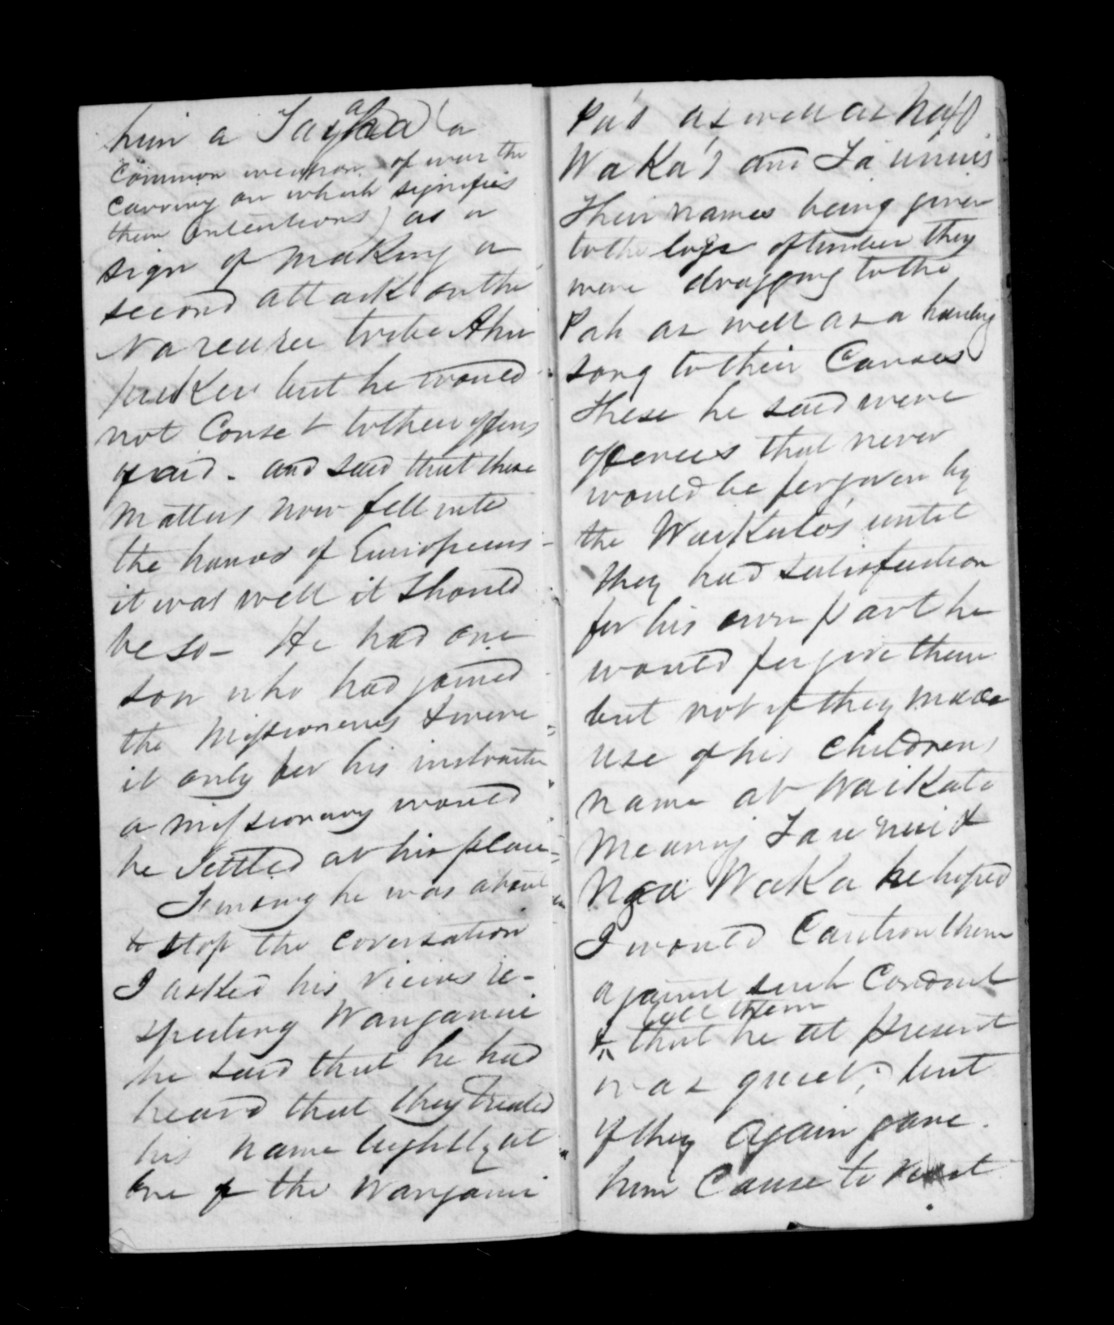 him a Taiaha (a
common weapon of war the
carrying on which signifies
their intentions) as a
sign of making a
second attack on the
tribe Ahu
but he would
not Conset to their offers
of aid. and said that these
matters now fell into
the hands of Europeans -
it was well it should
be so - He had one
son who had joined
the Missionaries & were
it only for his instruction
a missionary would
be settled at his place
he was about
to stop the coversation
I asked his views re-
specting Wanganui
he said that he had
heard that they treated
his name lightly at
one of the Wanganui
Pa's as well as Nga
Waka's and Ta uinuis
Their names being given
to the logs of timber they
were dragging to the
Pah as well as a hauling
song to their Canoes
These he said were
offences that never
would be forgiven by
the Waikato's until
they had satisfaction
for his own part he
would forgive them
but not if they made
use of his childrens
name at Waikato
Meaning Ta ui nui &
Nga Waka he hoped
I would Caution them
against such Conduct
& tell them that he at present
was quiet, but
if they again gave
him Cause to